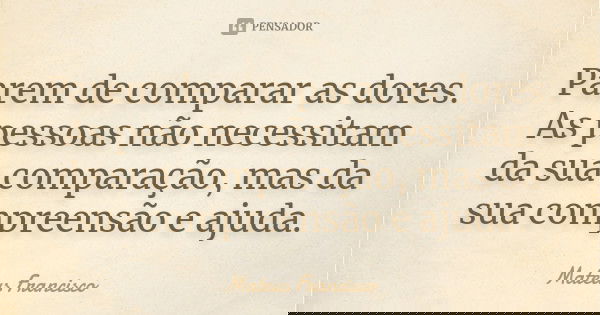 PENSADOR
Parem de comparar as dores.
As pessoas não necessitam
da sua comparação, mas da
sua compreensão e ajuda.
Mateus Francisco